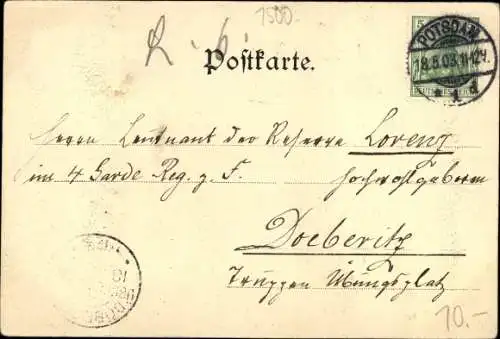 1500.-
Postkarte.
POTSDAM
18.5.03. 11-12V.
* 1 d
Herrn Leutnant der Reserve Lorenz
im 4 Garde Reg. z. F. Hochwohlgeboren
Doeberitz
Truppen Übungsplatz
10.-